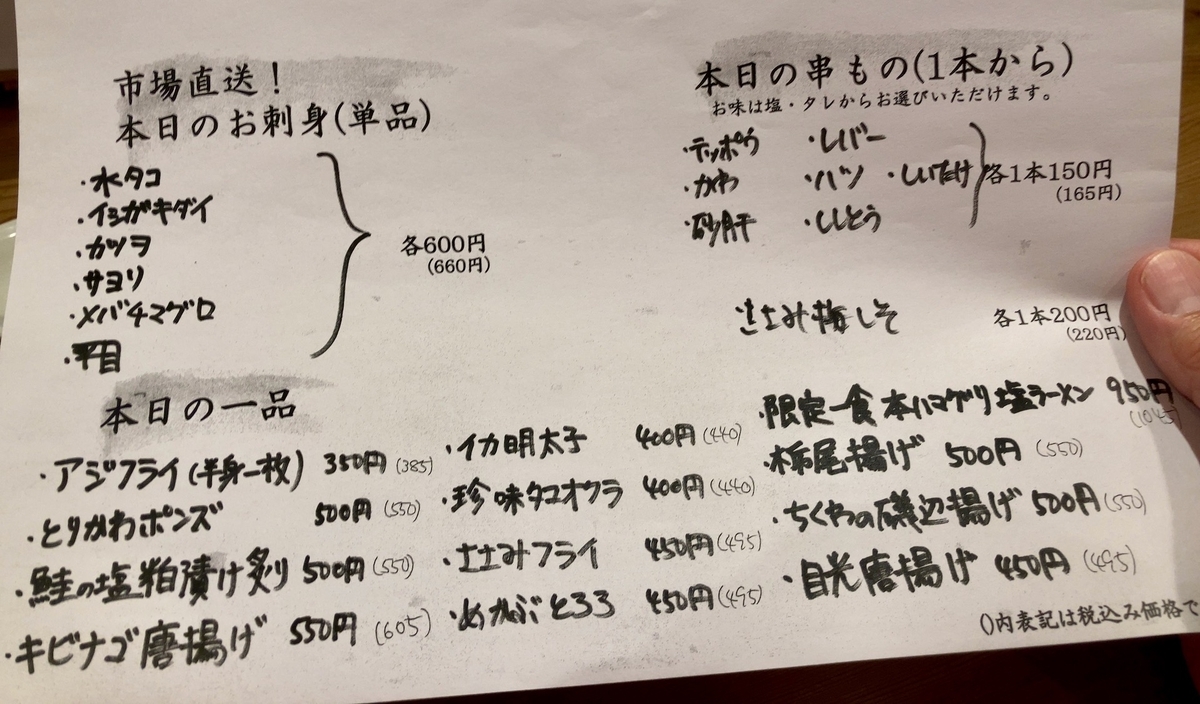 市場直送！
本日のお刺身(単品)
・水タコ
・イシガキダイ
・カツヲ
・サヨリ
・メバチマグロ
・平目
各600円
(660円)
本日の串もの(1本から)
お味は塩・タレからお選びいただけます。
・テッポウ ・レバー
・かわ ・ハツ ・しいたけ
・砂肝 ・ししとう
各1本150円
(165円)
ささみ梅しそ 各1本200円
(220円)
本日の一品
・アジフライ(半身一枚) 350円(385)
・とりかわポンズ 500円(550)
・鮭の塩粕漬け炙り 500円(550)
・キビナゴ唐揚げ 550円(605)
・イカ明太子 400円(440)
・珍味タコオクラ 400円(440)
・ささみフライ 450円(495)
・めかぶとろろ 450円(495)
・限定一食 本ハマグリ塩ラーメン 950円
(1045)
・栃尾揚げ 500円(550)
・ちくわの磯辺揚げ 500円(550)
・目光唐揚げ 450円(495)
()内表記は税込み価格で